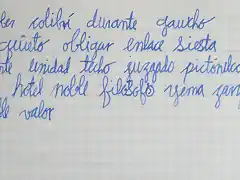 colibrí durante gaucho
quieto obligar enlace siesta
unidad techo juzgado
hotel noble filósofo yema
valor